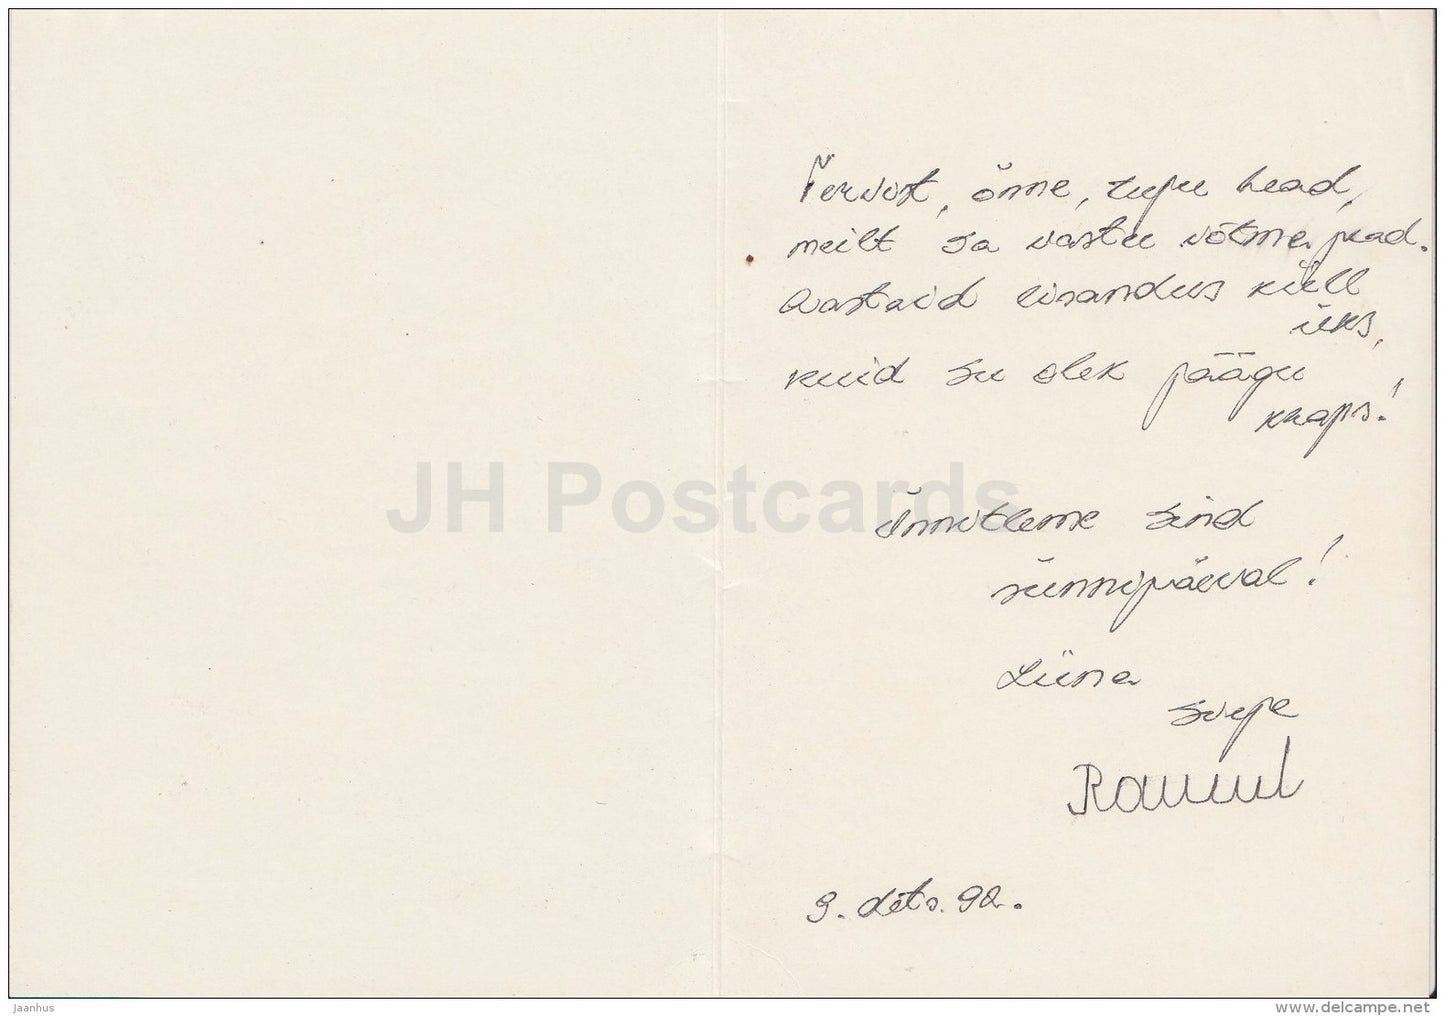 Tervist, õnne, tuju head,
meilt sa vastu võtma pead.
Aastaid lisandus küll
üks,
kuid su olek päägu
kraps!
Õnnitleme sind
sünnipäeval!
Liina
Raunul
9. dets. 92.
JH Postcards
jaanhus
www.delcampe.net